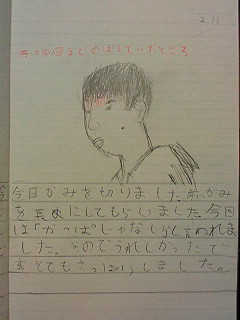 2 11
赤=前回までのばしていたところ
今日かみを切りました。前がみ
を長めにしてもらいました。今回
は「かっぱじゃない」と言われま
した。なのでうれしかったで
す。とてもさっぱりしました。